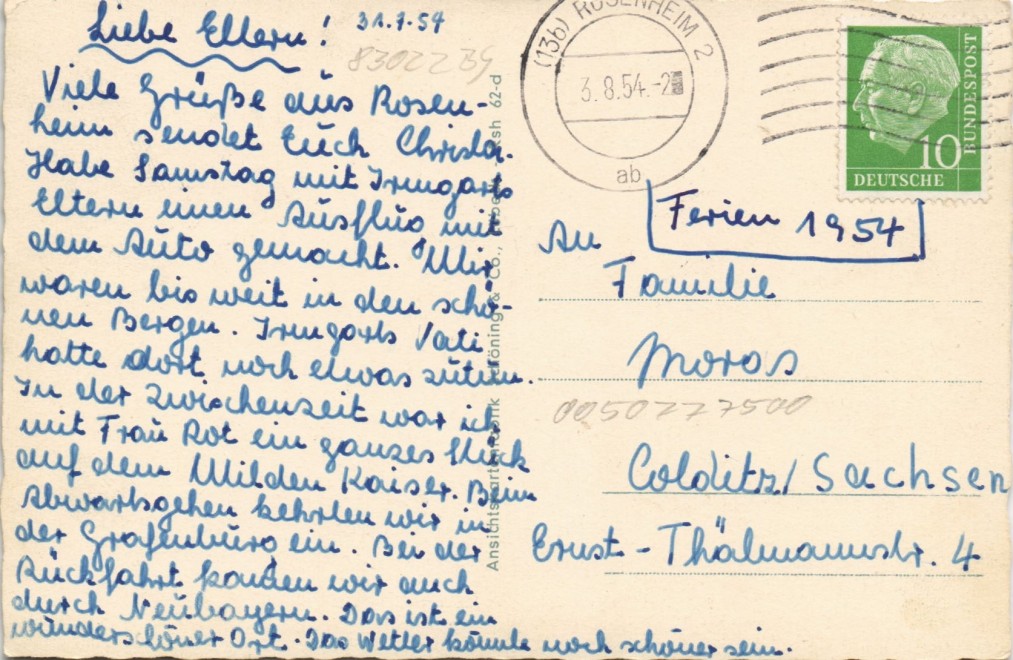 Liebe Eltern! 31.7.54
Viele Grüße aus Rosen-
heim sendet Euch Christa.
Habe Samstag mit Irmgarts
Eltern einen Ausflug mit
dem Auto gemacht. Wir
waren bis weit in den schö-
nen Bergen. Irmgarts Vati
hatte dort noch etwas zutun.
In der Zwischenzeit war ich
mit Frau Rot ein ganzes Stück
auf dem Wilden Kaiser. Beim
Abwärtsgehen kehrten wir in
der Grafenburg ein. Bei der
Rückfahrt kamen wir auch
durch Neubayern. Das ist ein
wunderschöner Ort. Das Wetter könnte noch schöner sein.
8302239
Ansichtskartenfabrik Schöning & Co., Lübeck 62-d
(13b) ROSENHEIM 2
3.8.54.-2
ab
10
DEUTSCHE
BUNDESPOST
Ferien 1954
An
Familie
Moras
0050277500
Colditz/Sachsen
Ernst-Thälmannstr. 4